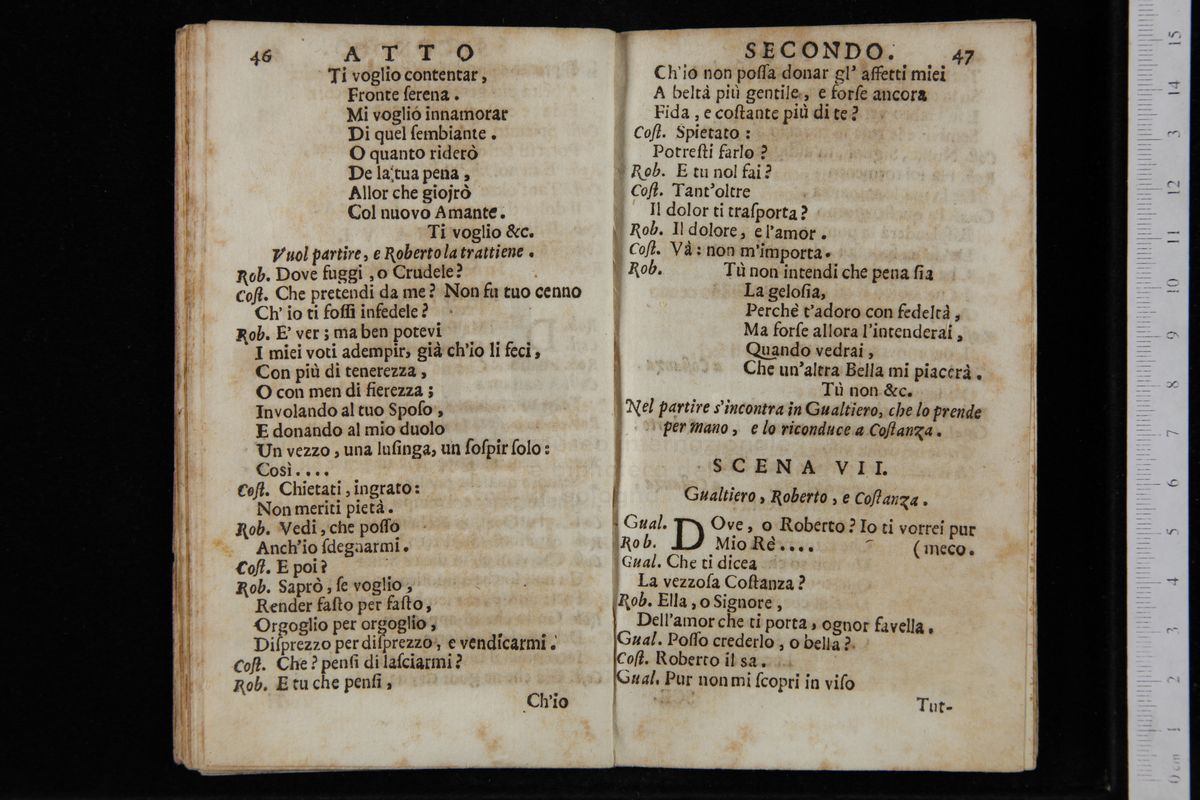 46 A T T O
Ti voglio contentar,
Fronte ſerena.
Mi voglió innamorar
Di quel ſembiante.
O quanto riderò
De la tua pena,
Allor che giojrò
Col nuovo Amante.
Ti voglio &c.
Vuol partire, e Roberto la trattiene.
Rob. Dove fuggi, o Crudele?
Coſt. Che pretendi da me? Non fu tuo cenno
Ch' io ti foſſi infedele?
Rob. E' ver; ma ben potevi
I miei voti adempir, già ch'io li feci,
Con più di tenerezza,
O con men di fierezza;
Involando al tuo Spoſo,
E donando al mio duolo
Un vezzo, una luſinga, un ſoſpir ſolo:
Così....
Coſt. Chietati, ingrato:
Non meriti pietà.
Rob. Vedi, che poſſo
Anch'io ſdegnarmi.
Coſt. E poi?
Rob. Saprò, ſe voglio,
Render faſto per faſto,
Orgoglio per orgoglio,
Diſprezzo per diſprezzo, e vendicarmi.
Coſt. Che? penſi di laſciarmi?
Rob. E tu che penſi,
Ch'io
SECONDO. 47
Ch'io non poſſa donar gl' affetti miei
A beltà più gentile, e forſe ancora
Fida, e coſtante più di te?
Coſt. Spietato:
Potreſti farlo?
Rob. E tu nol fai?
Coſt. Tant'oltre
Il dolor ti traſporta?
Rob. Il dolore, e l'amor.
Coſt. Và: non m'importa.
Rob. Tù non intendi che pena ſia
La geloſia,
Perchè t'adoro con fedeltà,
Ma forſe allora l'intenderai,
Quando vedrai,
Che un'altra Bella mi piacerà.
Tù non &c.
Nel partire s'incontra in Gualtiero, che lo prende
per mano, e lo riconduce a Coſtanza.
SCENA VII.
Gualtiero, Roberto, e Coſtanza.
Gual. DOve, o Roberto? Io ti vorrei pur
Rob. Mio Rè.... (meco.
Gual. Che ti dicea
La vezzoſa Coſtanza?
Rob. Ella, o Signore,
Dell'amor che ti porta, ognor favella.
Gual. Poſſo crederlo, o bella?
Coſt. Roberto il sa.
Gual. Pur non mi ſcopri in viſo
Tut-
0 cm 1 2 3 4 5 6 7 8 9 10 11 12 13 14 15